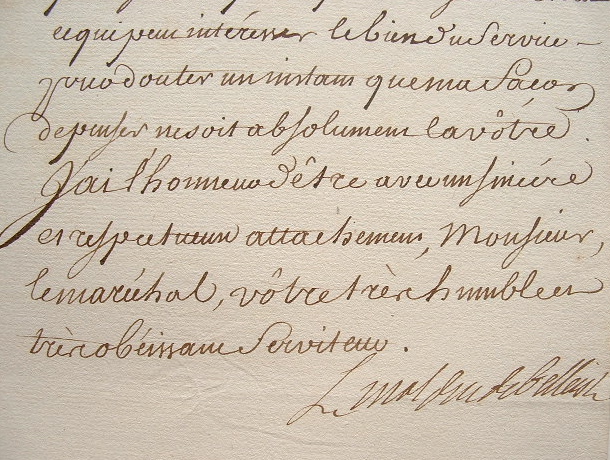 ce qui peut intéresser le bien du Service –
pour douter un instant que ma façon
de penser ne soit absolument la vôtre.
J'ai l'honneur d'être avec un sincére
et respectueux attachement, Monsieur,
le maréchal, vôtre très humble et
très obéissant Serviteur.
Le mal duc de